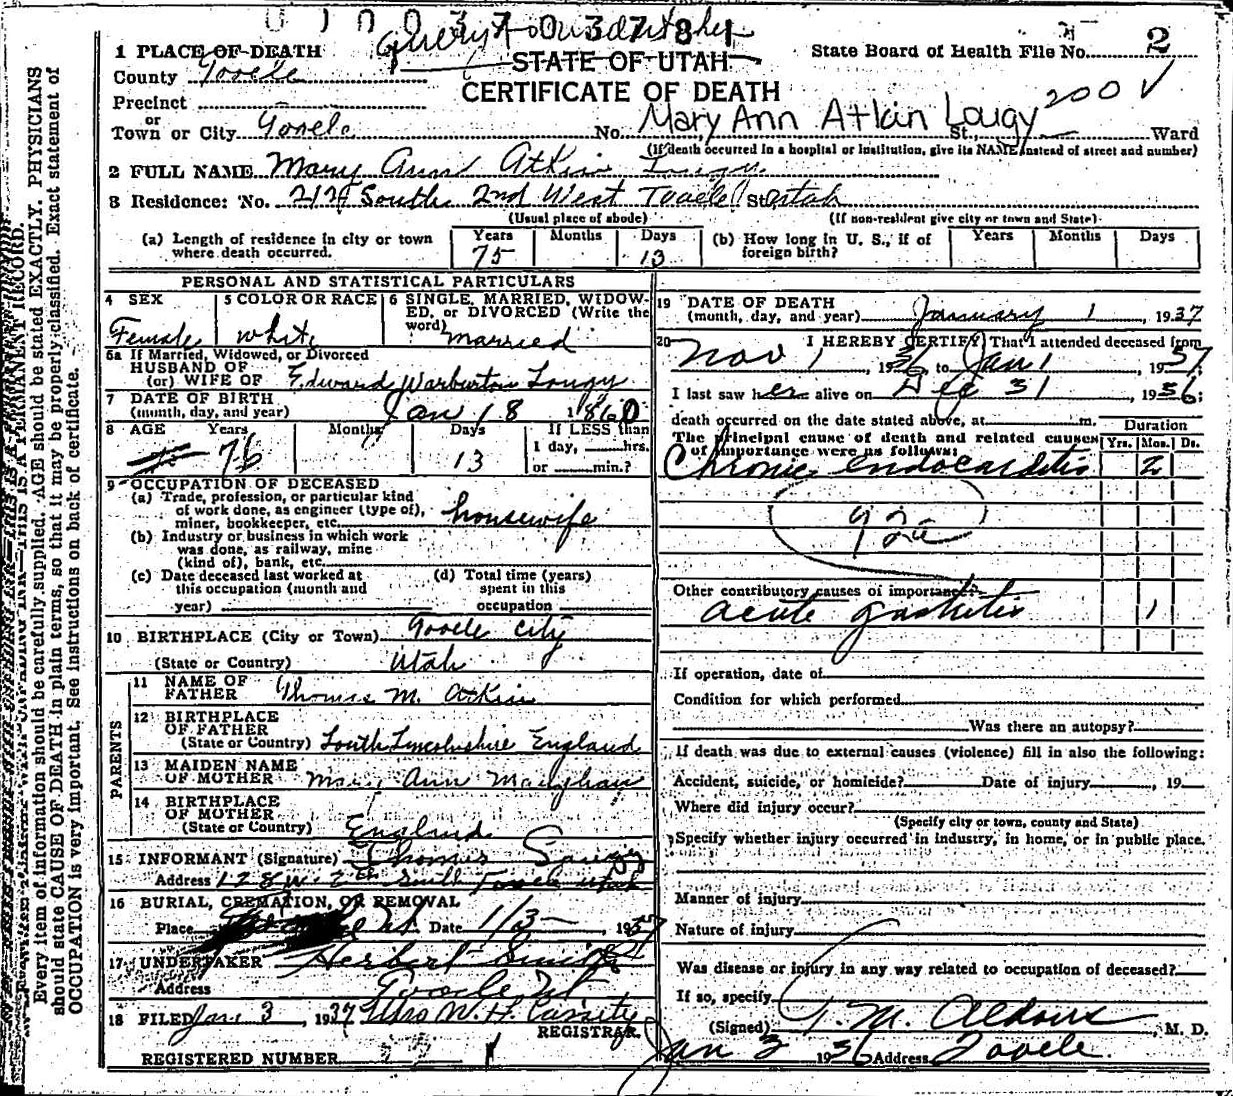 1 PLACE OF DEATH
County Tooele
Precinct
or
Town or City Tooele
STATE OF UTAH
CERTIFICATE OF DEATH
State Board of Health File No. 2
200 ✓
No. Mary Ann Atkin Lougy St., Ward
(If death occurred in a hospital or institution, give its NAME instead of street and number)
2 FULL NAME Mary Ann Atkin Lougy
3 Residence: No. South 2nd West Tooele St. Utah
(Usual place of abode) (If non-resident give city or town and State)
(a) Length of residence in city or town where death occurred. Years 75 Months Days 13
(b) How long in U. S., if of foreign birth? Years Months Days
PERSONAL AND STATISTICAL PARTICULARS
4 SEX Female
5 COLOR OR RACE white
6 SINGLE, MARRIED, WIDOWED, or DIVORCED (Write the word) married
6a If Married, Widowed, or Divorced
HUSBAND OF
(or) WIFE OF Edward Warburton Lougy
7 DATE OF BIRTH
(month, day, and year) Jan 18 1860
8 AGE Years 76 Months Days 13 If LESS than 1 day, hrs. or min.?
9 OCCUPATION OF DECEASED
(a) Trade, profession, or particular kind of work done, as engineer (type of), miner, bookkeeper, etc. housewife
(b) Industry or business in which work was done, as railway, mine (kind of), bank, etc.
(c) Date deceased last worked at this occupation (month and year)
(d) Total time (years) spent in this occupation
10 BIRTHPLACE (City or Town) Tooele City
(State or Country) Utah
PARENTS
11 NAME OF FATHER Thomas M. Atkin
12 BIRTHPLACE OF FATHER
(State or Country) South Lincolnshire England
13 MAIDEN NAME OF MOTHER Mary Ann Maughan
14 BIRTHPLACE OF MOTHER
(State or Country) England
15 INFORMANT (Signature) Thomas Lougy
Address 128 W. 2nd South Tooele Utah
16 BURIAL, CREMATION, OR REMOVAL
Place Ut. Date 1/3, 1937
17 UNDERTAKER Herbert Smith
Address Tooele Ut
18 FILED Jan 3, 1937 Mrs W. H. Cassity
REGISTRAR.
REGISTERED NUMBER
19 DATE OF DEATH
(month, day, and year) January 1, 1937
20 I HEREBY CERTIFY, That I attended deceased from
Nov 1, 1936, to Jan 1, 1937;
I last saw her alive on Dec 31, 1936;
death occurred on the date stated above, at m.
The principal cause of death and related causes of importance were as follows: Duration Yrs. Mos. Ds.
Chronic endocarditis 2
92a
Other contributory causes of importance:
acute gastritis 1
If operation, date of
Condition for which performed
Was there an autopsy?
If death was due to external causes (violence) fill in also the following:
Accident, suicide, or homicide? Date of injury, 19
Where did injury occur?
(Specify city or town, county and State)
Specify whether injury occurred in industry, in home, or in public place.
Manner of injury
Nature of injury
Was disease or injury in any way related to occupation of deceased?
If so, specify
(Signed) T. M. Aldous, M. D.
Jan 2 1936 Address Tooele.
Every item of information should be carefully supplied. AGE should be stated EXACTLY. PHYSICIANS
should state CAUSE OF DEATH in plain terms, so that it may be properly classified. Exact statement of
OCCUPATION is very important. See instructions on back of certificate.